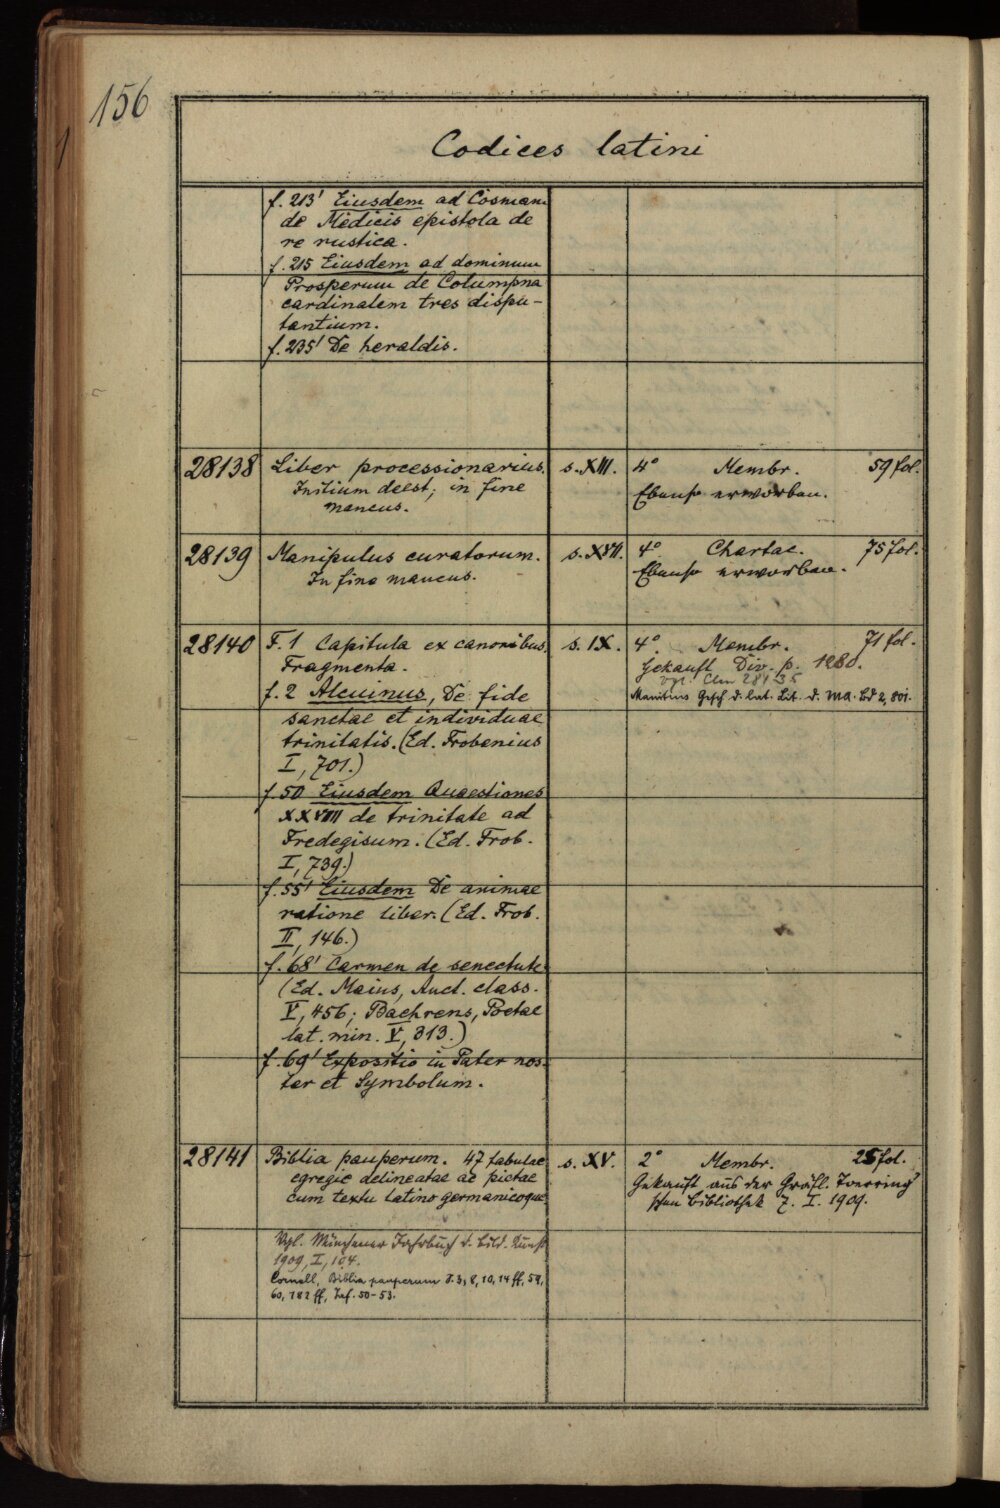 156
Codices latini
f. 213' Eiusdem ad Cosmam
de Medicis epistola de
re rustica.
f. 215 Eiusdem ad dominum
Prosperum de Columpna
cardinalem tres dispu-
tantium.
f. 235' De heraldis.
28138 Liber processionarius. s. XIII. 4° Membr. 59 fol.
Initium deest; in fine Ebenso erworben.
mancus.
28139 Manipulus curatorum. s. XVII. 4° Chartac. 75 fol.
In fine mancus. Ebenso erworben.
28140 F. 1 Capitula ex canonibus. s. IX. 4° Membr. 71 fol.
Fragmenta. Gekauft Div. p. 1280.
vgl. Clm 28135
f. 2 Alcuinus, De fide Manitius Gesch d. lat. Lit. d. MA. Bd 2, 801.
sanctae et individuae
trinitatis. (Ed. Frobenius
I, 701.)
f. 50 Eiusdem Quaestiones
XXVIII de trinitate ad
Fredegisum. (Ed. Frob.
I, 739.)
f. 55' Eiusdem De animae
ratione liber. (Ed. Frob.
II, 146.)
f. 68' Carmen de senectute
(Ed. Maius, Auct. class.
V, 456; Baehrens, Poetae
lat. min. V, 313.)
f. 69' Expositio in Pater nos-
ter et Symbolum.
28141 Biblia pauperum. 47 tabulae s. XV. 2° Membr. 25 fol.
egregie delineatae ac pictae Gekauft aus der Gräfl. Toerring'
cum textu latino germanicoque schen Bibliothek 7. I. 1909.
Vgl. Münchener Jahrbuch d. bild. Kunst
1909, I, 104.
Cornell, Biblia pauperum S. 3, 8, 10, 14 ff, 59,
60, 182 ff, Taf. 50-53.